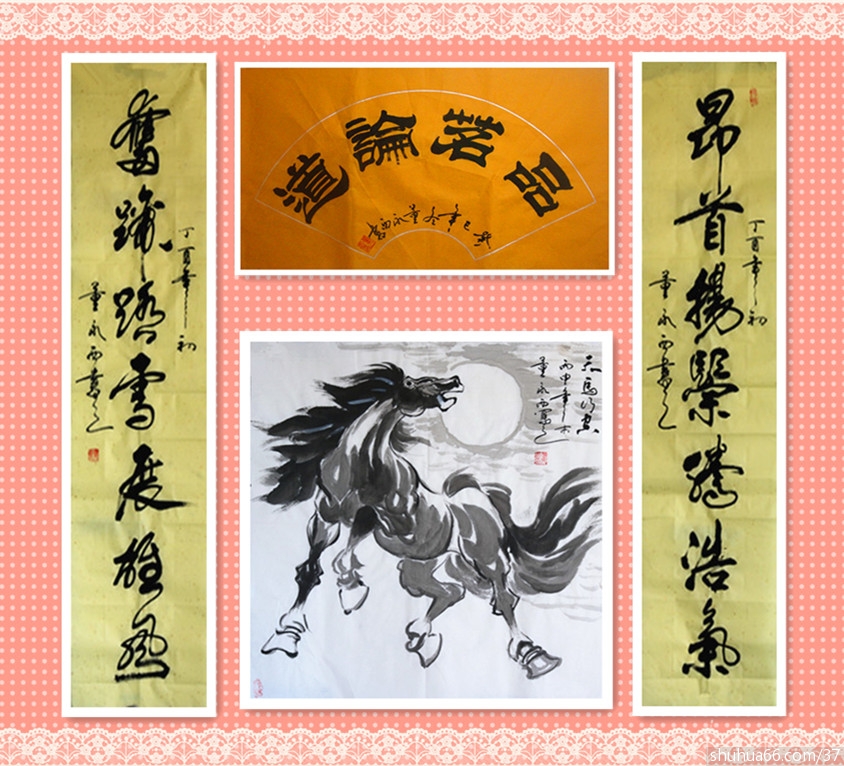 昂首揚鬃騰浩氣
丁酉年初
董永西書之
品茗論道
癸巳年冬董永西書
天馬行空
丙申年
董永西寫之
奮蹄踏雪展雄風
丁酉年初
董永西書之
shuhua66.com/37